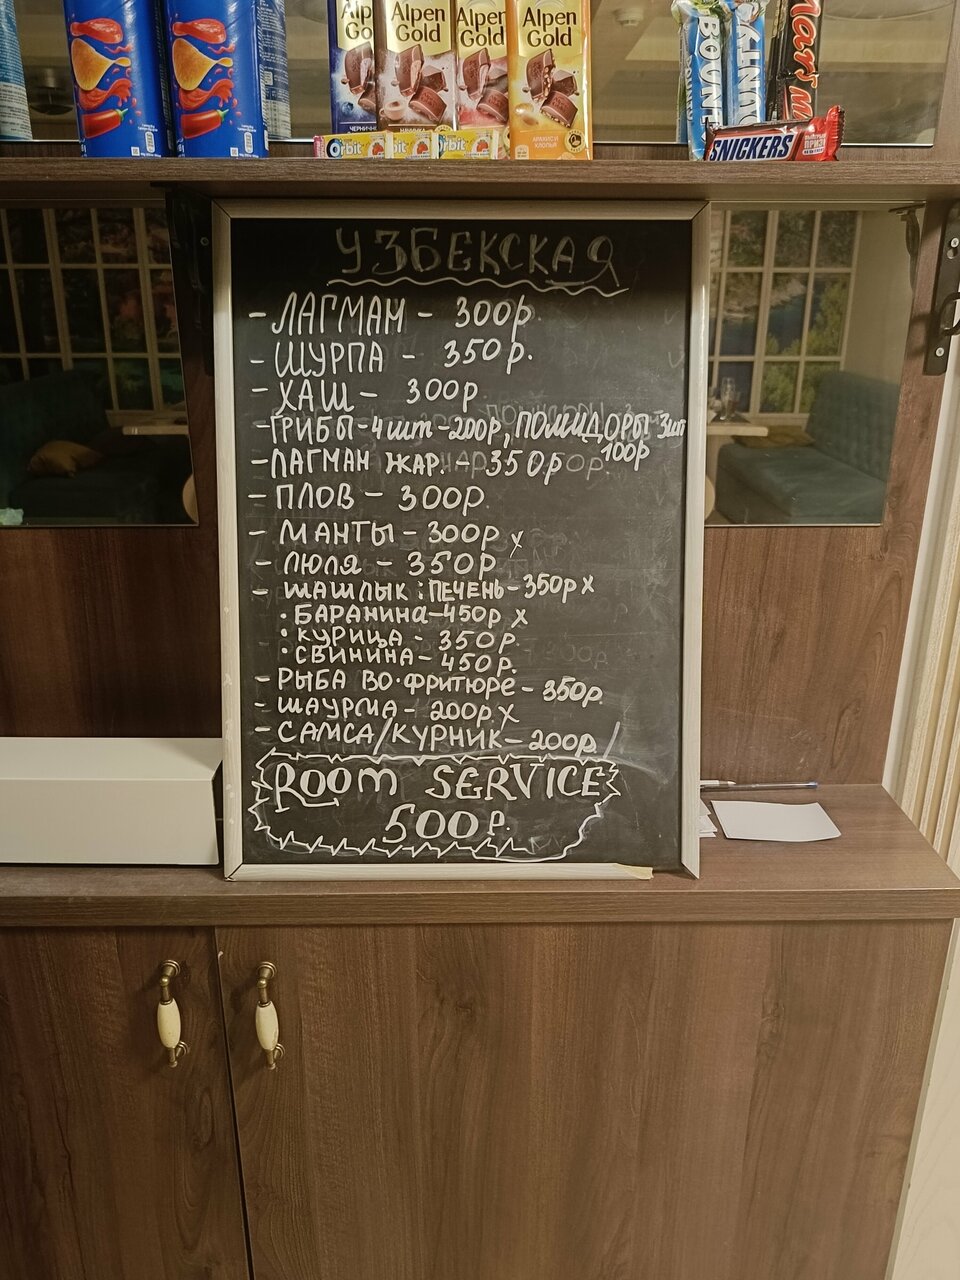 Alpen Gold
Alpen Gold
Alpen Gold
Alpen Gold
АРАХИС И ХЛОПЬЯ
Orbit
BOUNTY
Mars
SNICKERS
УЗБЕКСКАЯ
- ЛАГМАН - 300р
- ШУРПА - 350р.
- ХАШ - 300р
- ГРИБЫ - 4шт - 200р, ПОМИДОРЫ 3шт
100р
- ЛАГМАН ЖАР. - 350р
- ПЛОВ - 300р
- МАНТЫ - 300р х
- ЛЮЛЯ - 350р
- ШАШЛЫК : ПЕЧЕНЬ - 350р х
· БАРАНИНА - 450р х
· КУРИЦА - 350р.
· СВИНИНА - 450р.
- РЫБА ВО·ФРИТЮРЕ - 350р.
- ШАУРМА - 200р х
- САМСА/КУРНИК - 200р
ROOM SERVICE
500р.